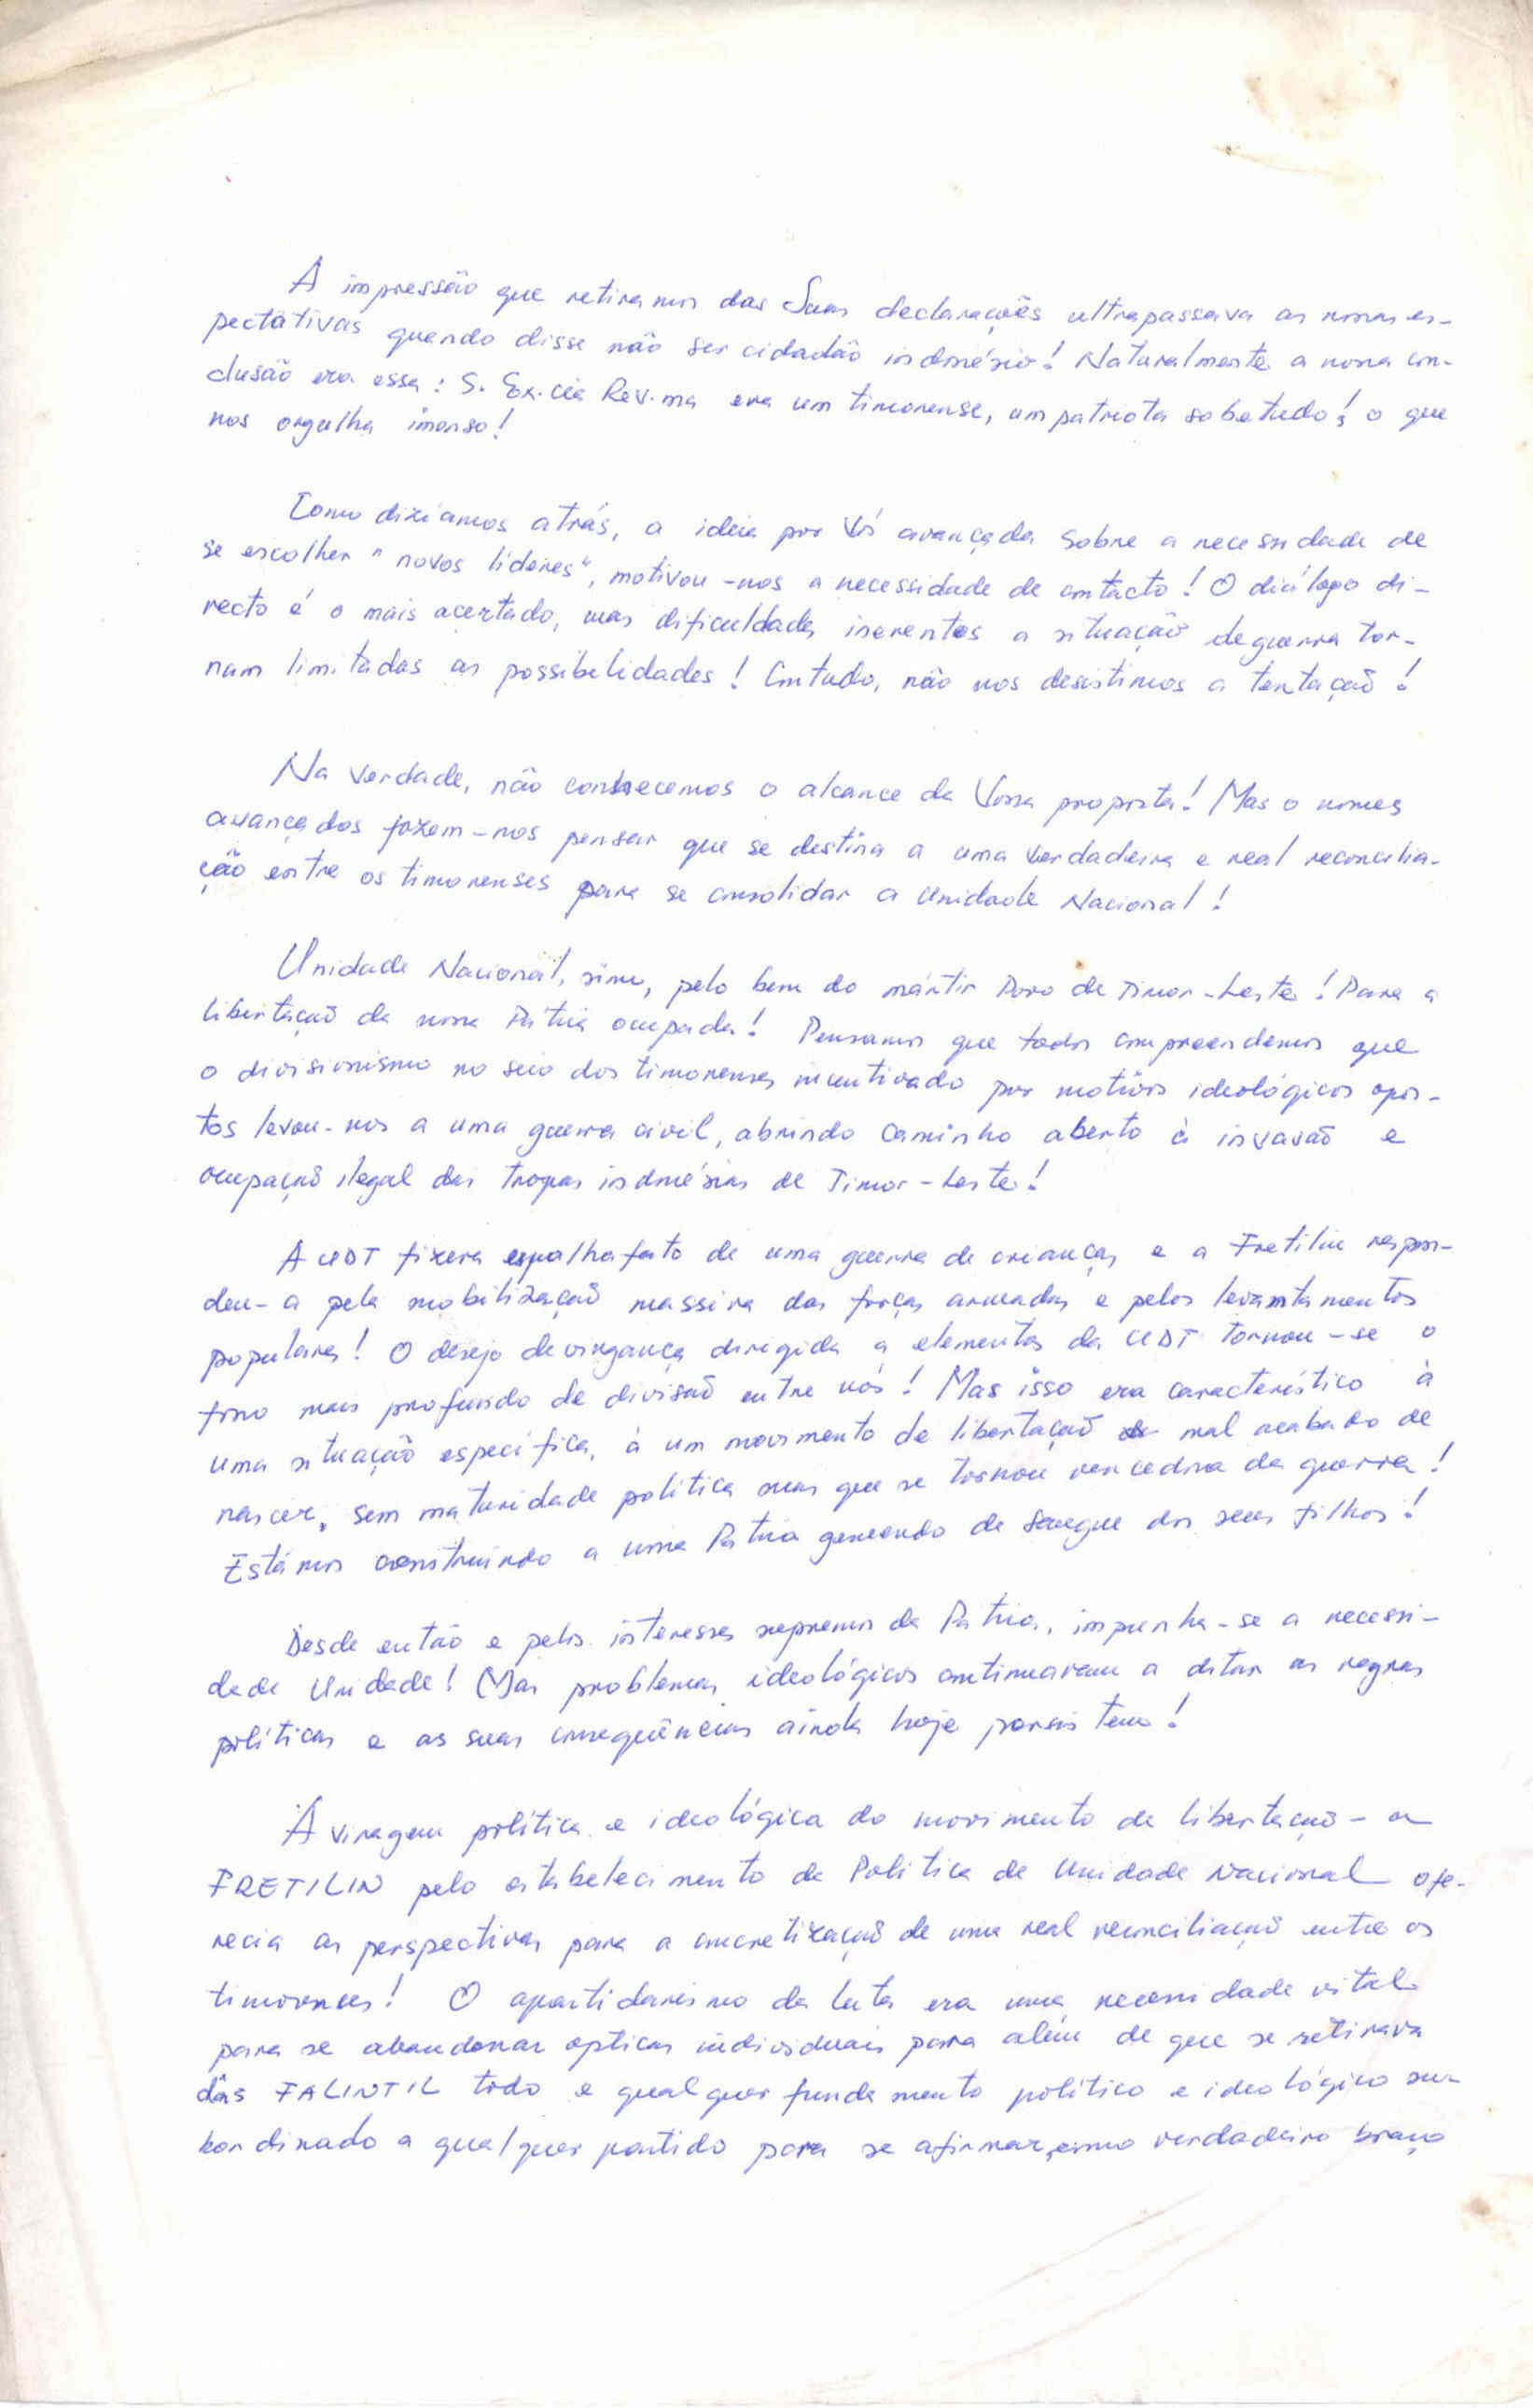 A impressão que retiramos das Suas declarações ultrapassava as nossas ex-
pectativas quando disse não ser cidadão indonésio! Naturalmente a nossa con-
clusão era essa: S. Ex.cia Rev.ma era um timorense, um patriota sobetudo! o que
nos orgulha imenso!
Como dizíamos atrás, a ideia por Vós avançada sobre a necessidade de
se escolher "novos líderes", motivou-nos a necessidade de contacto! O diálogo di-
recto é o mais acertado, mas dificuldades inerentes a situação de guerra tor-
nam limitadas as possibelidades! Contudo, não nos desistimos a tentação!
Na verdade, não conhecemos o alcance da Vossa proposta! Mas o nomes
avançados fazem-nos pensar que se destina a uma verdadeira e real reconcilia-
ção entre os timorenses para se consolidar a Unidade Nacional!
Unidade Nacional, sim, pelo bem do mártir Povo de Timor-Leste! Para a
libertação da nossa Pátria ocupada! Pensamos que todos compreendemos que
o divisionismo no seio dos timorenses incentivado por motivos ideológicos opos-
tos levou-nos a uma guerra civil, abrindo caminho aberto à invasão e
ocupação ilegal das tropas indonésias de Timor-Leste!
A UDT fizera espalhafato de uma guerra de crianças e a Fretilin respon-
deu-a pela mobilização massiva das forças armadas e pelos levantamentos
populares! O desejo de vingança dirigida a elementos da UDT tornou-se o
fosso mais profundo de divisão entre nós! Mas isso era característico à
uma situação específica, à um movimento de libertação mal acabado de
nascer, sem maturidade política mas que se tornou vencedora da guerra!
Estámos construindo a uma Pátria gemendo de sangue dos seus filhos!
Desde então e pelos interesses supremos da Pátria, impunha-se a necessi-
dade Unidade! Mas problemas ideológicos continuaram a ditar as regras
políticas e as suas consequências ainda hoje persistem!
A viragem política e ideológica do movimento de libertação - a
FRETILIN pelo estabelecimento da Política de Unidade Nacional ofe-
recia as perspectivas para a concretização de uma real reconciliação entre os
timorenses! O apartidarismo da luta era uma necessidade vital
para se abandonar opticas individuais para além de que se retirava
das FALINTIL todo e qualquer fundamento político e ideológico su-
bordinado a qualquer partido para se afirmar, como verdadeiro braço